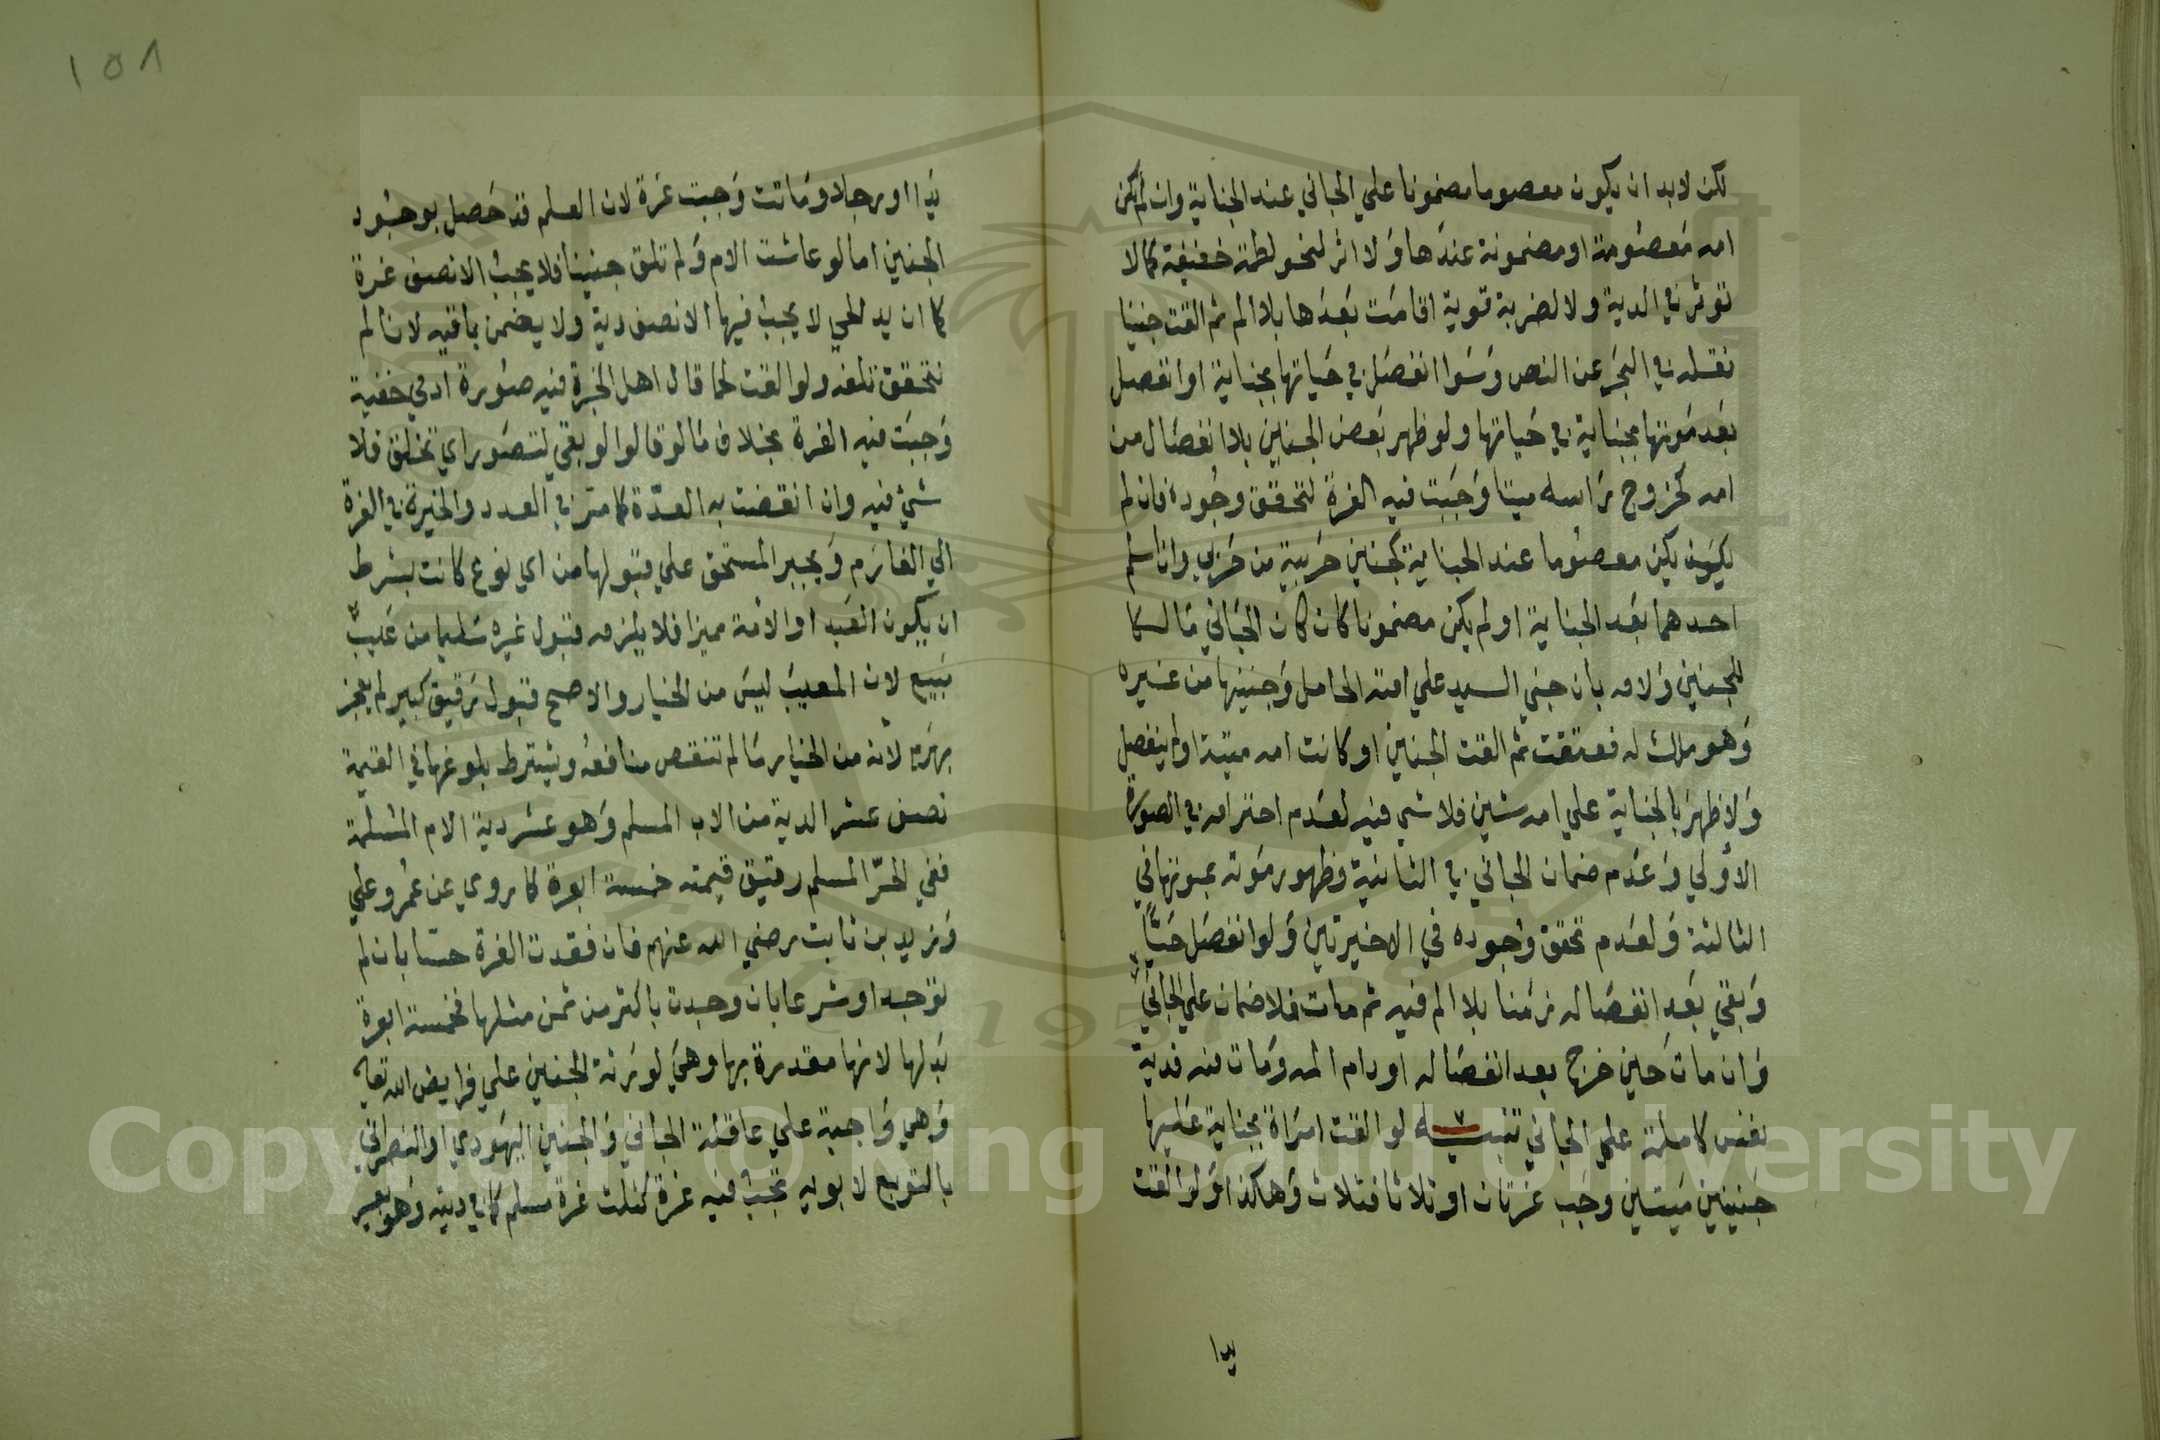 لكن لابد ان يكون معصوما مضمونا علي الجاني عند الجناية وان لم تكن
امه معصومة او مضمونة عندها ولا اثر لنحو لطمة خفيفة كما لا
توثر في الدية ولا لضربة قوية اقامت بعدها بلا الم ثم القت جنينا
نقله في البحر عن النص وسوا انفصل في حياتها بجناية او انفصل
بعد موتها بجناية في حياتها ولو ظهر بعض الجنين بلا انفصال من
امه كخروج راسه ميتا وجبت فيه الغرة لتحقق وجوده فان لم
يكن معصوما عند الجناية كجنين حربية من حربي وان اسلم
احدهما بعد الجناية او لم يكن مضمونا كان كان الجاني مالكا
للجنين ولامه بان جني السيد علي امته الحامل وجنينها من غيره
وهو ملك له فعتقت ثم القت الجنين او كانت امه ميتة او لم ينفصل
ولا ظهر بالجناية علي امه شين فلا شي فيه لعدم احترامه في الصورة
الاولي وعدم ضمان الجاني في الثانية وظهور موته بموتها في
الثالثة ولعدم تحقق وجوده في الاخيرتين ولو انفصل حيا
وبقي بعد انفصاله زمنا بلا الم فيه ثم مات فلا ضمان علي الجاني
وان مات حين خرج بعد انفصاله او دام المه ومات منه فدية
نفس كاملة علي الجاني تنبيه لو القت امراة بجناية عليها
جنينين ميتين وجب غرتان او ثلاثا فثلاث وهكذا ولو القت
يدا
١٥٨
يدا او رجلا وماتت وجبت غرة لان العلم قد حصل بوجود
الجنين اما لو عاشت الام ولم تلق جنينا فلا يجب الا نصف غرة
كما ان يد الحي لا يجب فيها الا نصف دية ولا يضمن باقيه لانا لم
نتحقق تلفه ولو القت لحما قال اهل الخبرة فيه صورة ادمي خفية
وجبت فيه الغرة بخلاف ما لو قالوا لو بقي لتصور اي تخلق فلا
شي فيه وان انقضت به العدة كما مر في العدد والخيرة في الغرة
الي الغارم ويجبر المستحق علي قبولها من اي نوع كانت بشرط
ان يكون العبد او الامة مميزا فلا يلزمه قبول غيره سليما من عيب
مبيع لان المعيب ليس من الخيار والاصح قبول رقيق كبير لم يعجز
بهرم لانه من الخيار ما لم تنقص منافعه ويشترط بلوغها في القيمة
نصف عشر الدية من الاب المسلم وهو عشر دية الام المسلمة
ففي الحر المسلم رقيق قيمته خمسة ابعرة كما روي عن عمر وعلي
وزيد بن ثابت رضي الله عنهم فان فقدت الغرة حسا بان لم
توجد او شرعا بان وجدت باكثر من ثمن مثلها فخمسة ابعرة
بدلها لانها مقدرة بها وهي لورثة الجنين علي فرايض الله تعالي
وهي واجبة علي عاقلة الجاني والجنين اليهودي او النصراني
بالتبع لابويه تجب فيه غرة كثلث غرة مسلم كما في ديته وهو بعير